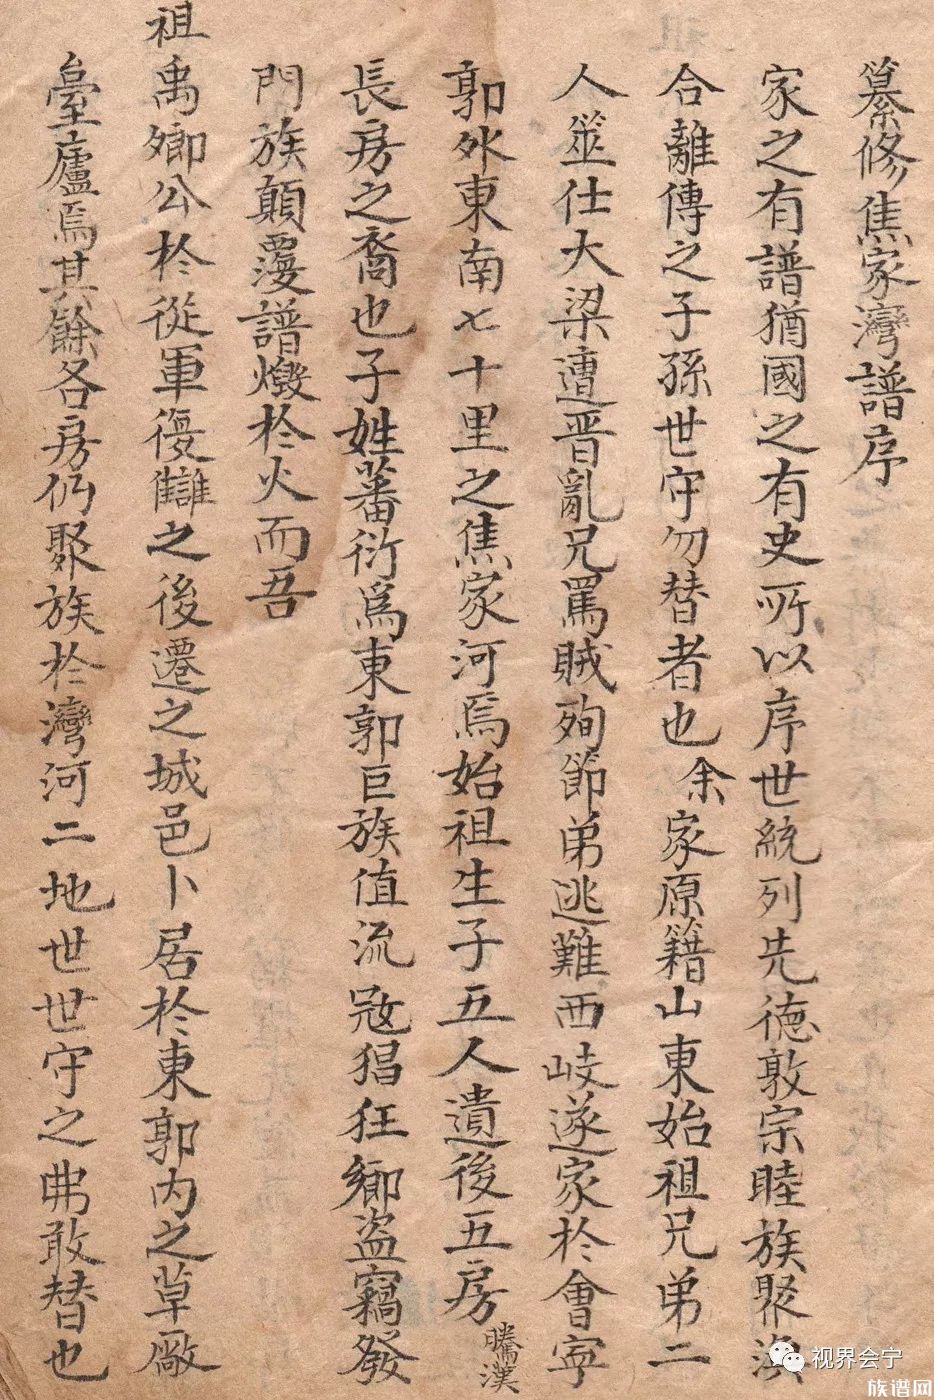 纂修焦家灣譜序
家之有譜猶國之有史所以序世統列先德敦宗睦族聚渙
合離傳之子孫世守勿替者也余家原籍山東始祖兄弟二
人筮仕大梁遭晋亂兄罵賊殉節弟逃難西岐遂家於會寧
郭外東南七十里之焦家河焉始祖生子五人遺後五房騰漢
長房之裔也子姓蕃衍為東郭巨族值流寇猖狂鄉盜竊發
門族顛覆譜燬於火而吾
祖禹鄉公於從軍復讎之後遷之城邑卜居於東郭内之草廠
臺廬焉其餘各房仍聚族於灣河二地世世守之弗敢替也
视界会宁
族谱网